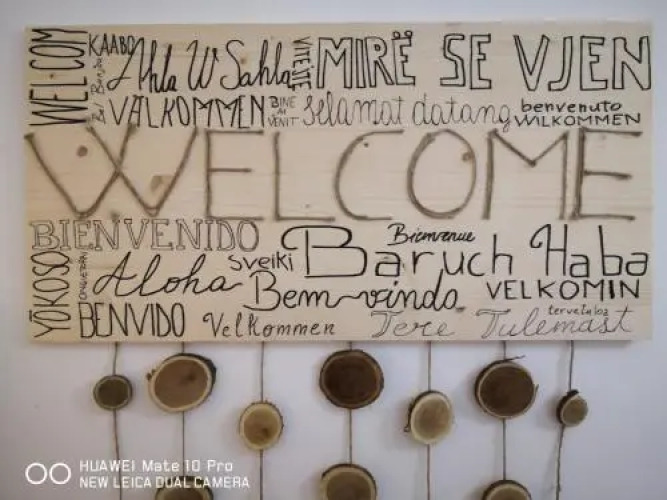 WELCOM
KAABO
Ahla W Sahla
VITEJTE
MIRË SE VJEN
Bonjour
VALKOMMEN
BINE AI VENIT
selamat datang
benvenuto
WILKOMMEN
WELCOME
BIENVENIDO
Bienvenue
YŌKOSO
Aloha
sveiki
Baruch Haba
Bem-vindo
VELKOMIN
BENVIDO
Velkommen
Tere Tulemast
tervetuloa
HUAWEI Mate 10 Pro
NEW LEICA DUAL CAMERA